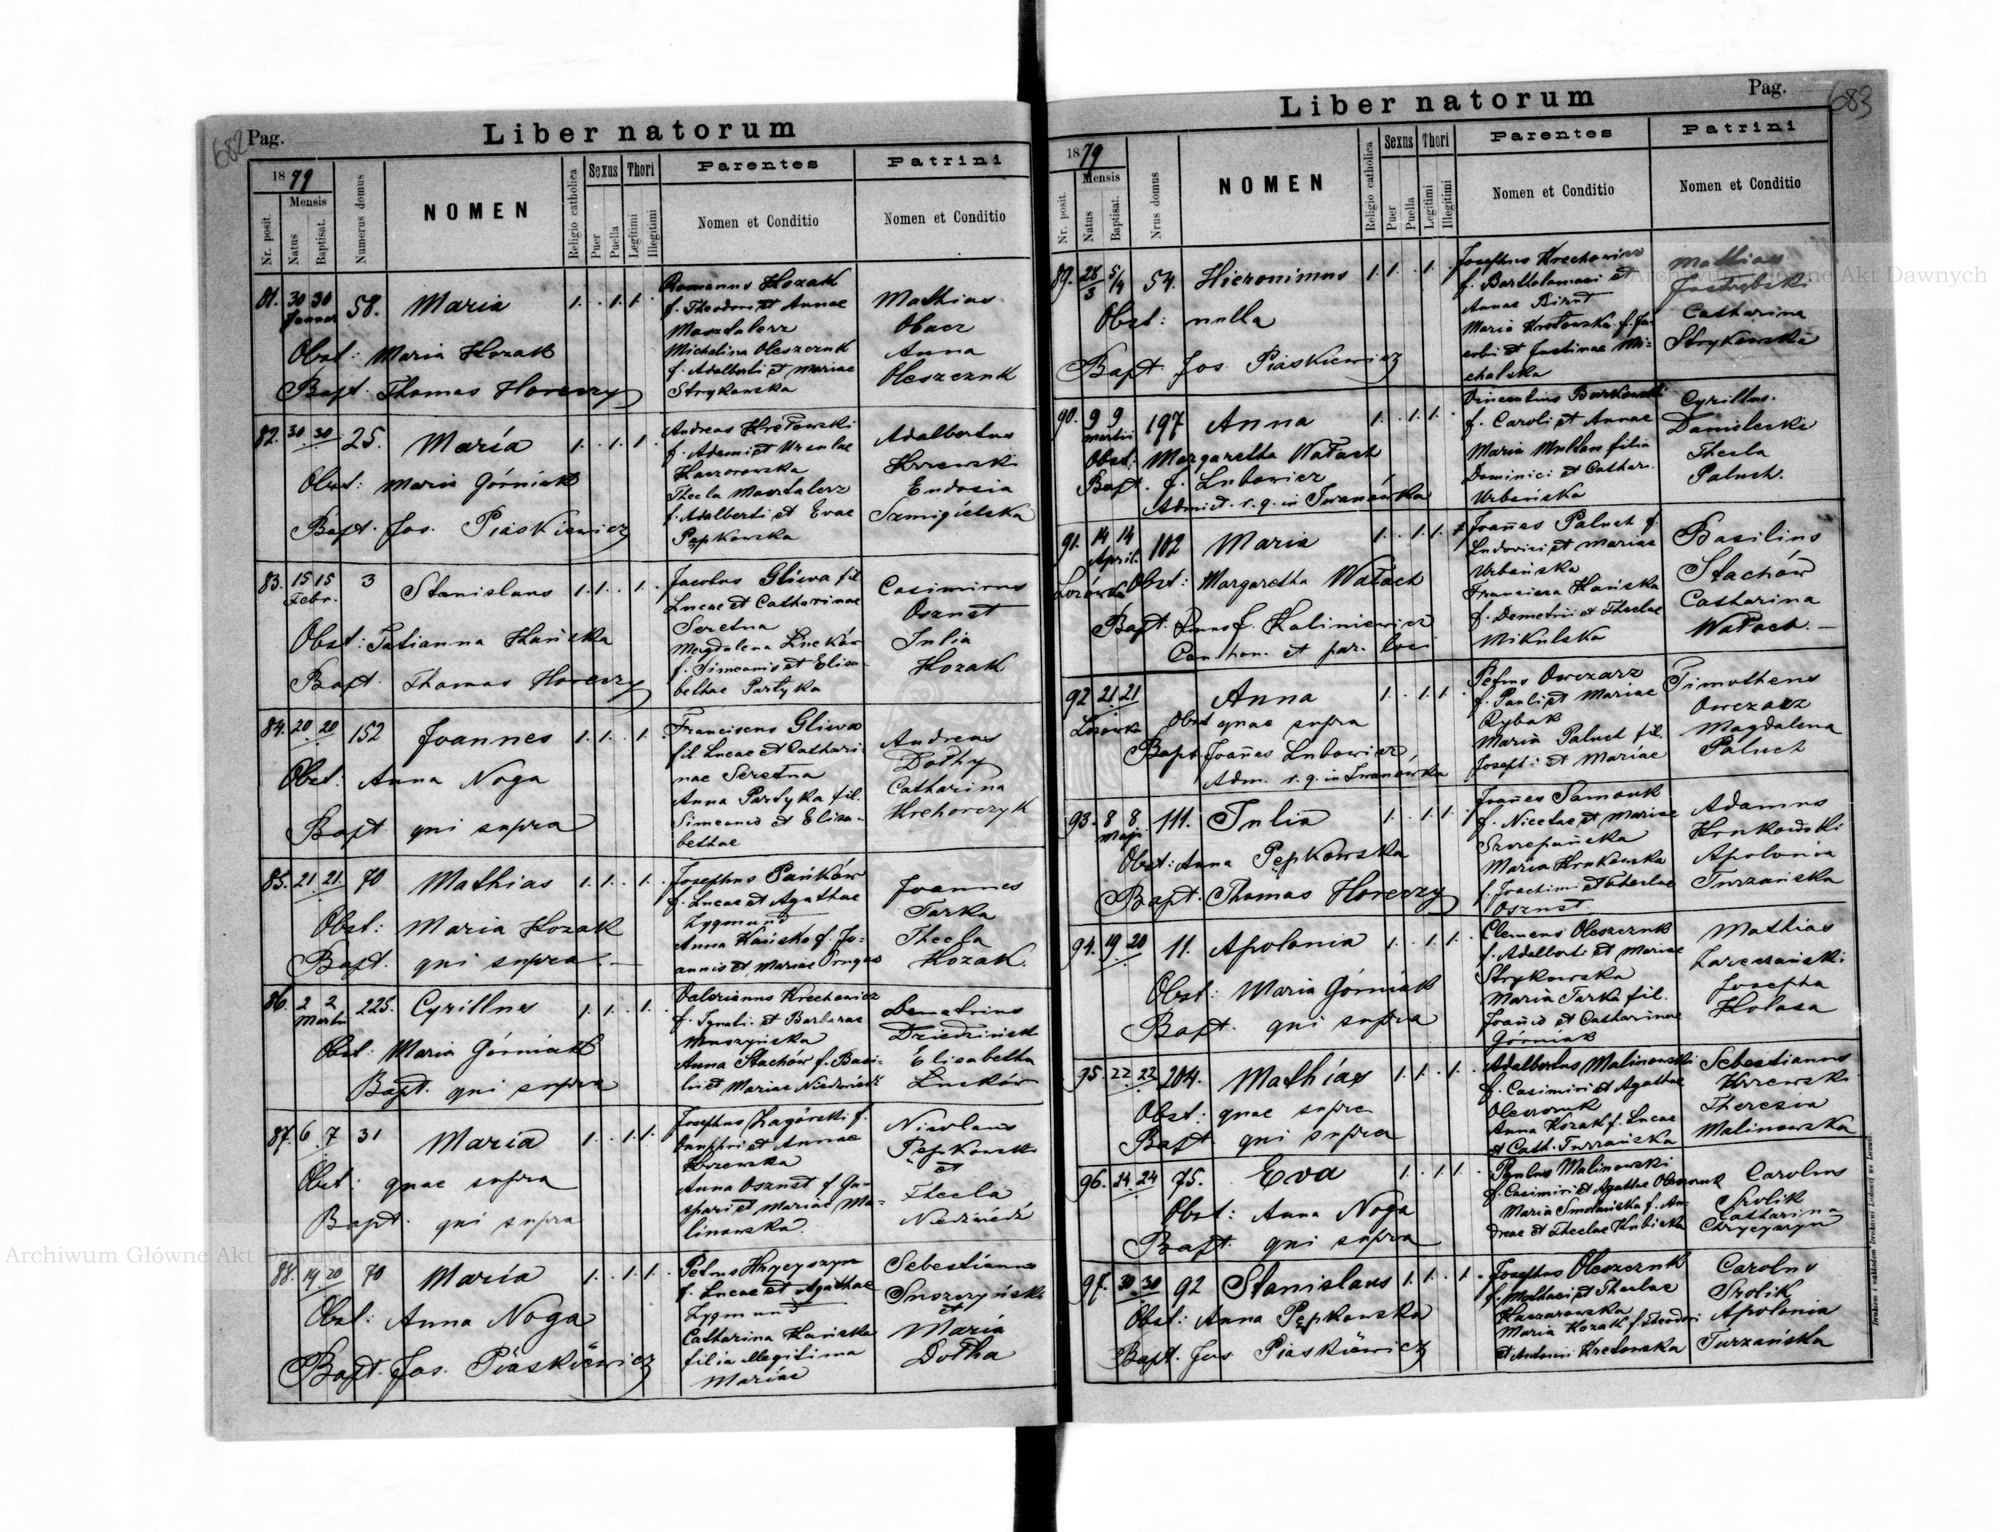 682
Pag.
Liber natorum
1879
Nr. posit.
Mensis
Natus
Baptisat.
Numerus domus
NOMEN
Religio catholica
Sexus
Puer
Puella
Thori
Legitimi
Illegitimi
Parentes
Nomen et Conditio
Patrini
Nomen et Conditio
81. 30 30 58. Maria 1. . 1. 1. .
Obst: Maria Kozak
Bapt. Thomas Horeczy
Romanus Kozak
f. Theodori et Annae
Masztalerz
Michalina Oleszczuk
f. Adalberti et Mariae
Strykowska
Mathias
Obacz
Anna
Oleszczuk
82. 30 30 25. Maria 1. . 1. 1. .
Obst: Maria Górniak
Bapt. Jos. Piaskiewicz
Andreas Krótowski
f. Adami et Ursulae
Kaczorowska
Thecla Masztalerz
f. Adalberti et Evae
Pępkowska
Adalbertus
Krzewski
Eudosia
Szmigielska
83. 15 15 Febr. 3 Stanislaus 1. 1. . 1. .
Obst: Tatianna Kańska
Bapt. Thomas Horeczy
Jacobus Gliwa fil
Lucae et Catharinae
Seretna
Magdalena Lucków
f. Simeonis et Elisa-
bethae Partyka
Casimirus
Osznst
Julia
Kozak
84. 20 20 152 Joannes 1. 1. . 1. .
Obst: Anna Noga
Bapt qui supra
Franciscus Gliwa
fil. Lucae et Cathari-
nae Seretna
Anna Partyka fil.
Simeonis et Elisa-
bethae
Andreas
Dothy
Catharina
Krehorczyk
85. 21 21 70 Mathias 1. 1. . 1. .
Obst: Maria Kozak
Bapt. qui supra. —
Josephus Pańków
f. Lucae et Agathae
Zygmund
Anna Kańska f. Jo-
annis et Mariae
Joannes
Tarka
Thecla
Kozak.
86. 2 2 Martii 225. Cyrillus 1. 1. . 1. .
Obst: Maria Górniak
Bapt. qui supra
Valerianus Krechowicz
f. Ignati et Barbarae
Muszyńska
Anna Stachów f. Basi-
lii et Mariae Niedzwiedź
Demetrius
Dziedziński
Elisabetha
Lucków
87. 6 7 31 Maria 1. . 1. 1.
Obst: quae supra
Bapt. qui supra
Josephus Zagórski f.
Onuphri et Annae
Krzewska
Anna Osznst f. Ga-
spari et Mariae Ma-
linowska.
Nicolaus
Pępkowski
et
Thecla
Niedźwiedź
88. 19 20 70 Maria 1. . 1. 1. .
Obst: Anna Noga
Bapt. Jos. Piaskiewicz
Petrus Hrycyszyn
f. Lucae et Agathae
Zygmund
Catharina Kańska
filia illegitima
Mariae
Sebestianus
Suszczyński
et
Maria
Dotha
683
Pag.
Liber natorum
1879
Nr. posit.
Mensis
Natus
Baptisat.
Nrus domus
NOMEN
Religio catholica
Sexus
Puer
Puella
Thori
Legitimi
Illegitimi
Parentes
Nomen et Conditio
Patrini
Nomen et Conditio
89. 28/3 5/4 54. Hieronimus 1. 1. . 1.
Obst: nulla
Bapt Jos. Piaskiewicz
Josephus Krechowicz
f. Bartholomaei et
Annae
Maria Krotowska f. Ja-
cobi et Justinae Mi-
chalska
Mathias
Jastrębski
Catharina
Strykowska
90. 9 9 Martii 197 Anna 1. . 1. 1. .
Obst: Margaretha Wałach
Bapt. J. Lubowicz
Admi. r. g. in Iwanówka
Vincentius Burkowski
f. Caroli et Annae
Maria Multan filia
Dominici et Cathar.
Urbańska
Cyrillus.
Danielecki
Thecla
Paluch.
91. 14 14 April. 102 Maria 1. . 1. 1.
Lozówka Obst: Margaretha Wałach
Bapt. J. Kaliniewicz
Can. hon. et par. loci
Joañes Paluch f.
Ludovici et Mariae
Urbańska
Francisca Kańska
f. Demetrii et Theclae
Mikulska
Basilius
Stachów
Catharina
Wałach. —
92 21 21 Anna 1. . 1. 1. .
Lozówka Obst quae supra
Bapt Joañes Lubowicz,
Adm. r. g. in Iwanówka
Petrus Owczarz
f. Pauli et Mariae
Rybak
Maria Paluch fil.
Josephi et Mariae
Timotheus
Owczarz
Magdalena
Paluch
93. 8 8 Maji 111. Julia 1. . 1. 1.
Obst: Anna Pępkowska
Bapt. Thomas Horeczy
Joañes Samouk
f. Nicetae et Mariae
Szczepańska
Maria Hrukowska
f. Joachimi et Theclae
Osznst.
Adamus
Hrukowski
Apolonia
Turzańska
94. 19. 20 11. Apolonia 1. . 1. 1.
Obst: Maria Górniak
Bapt. qui supra
Clemens Oleszczuk
f. Adalberti et Mariae
Strykowska
Maria Tarka fil.
Joañis et Catharinae
Górniak
Mathias
Josepha
Holasa
95. 22 22 204. Mathias 1. 1. . 1.
Obst: quae supra
Bapt qui supra
Adalbertus Malinowski
f. Casimiri et Agathae
Oleszczuk
Anna Kozak f. Lucae
et Cath. Turzańska
Sebestianus
Krzewski
Theresia
Malinowska
96. 24. 24 75. Eva 1. . 1. 1 .
Obst: Anna Noga
Bapt. qui supra
Paulus Malinowski
f. Casimiri et Agathae Oleszczuk
Maria Smolańska f. An-
dreae et Theclae Kubicka
Carolus
Srolik
Catharina
Chrycyszyn
97. 30 30 92 Stanislaus 1. 1. . 1. .
Obst: Anna Pępkowska
Bapt. Jos Piaskiewicz
Josephus Oleszczuk
f. Mathaei et Theclae
Kaczorowska
Maria Kozak f. Theodori
et Antonii Kretowska
Carolus
Srolik
Apolonia
Turzańska
Archiwum Główne Akt Dawnych
Archiwum Główne Akt Dawnych